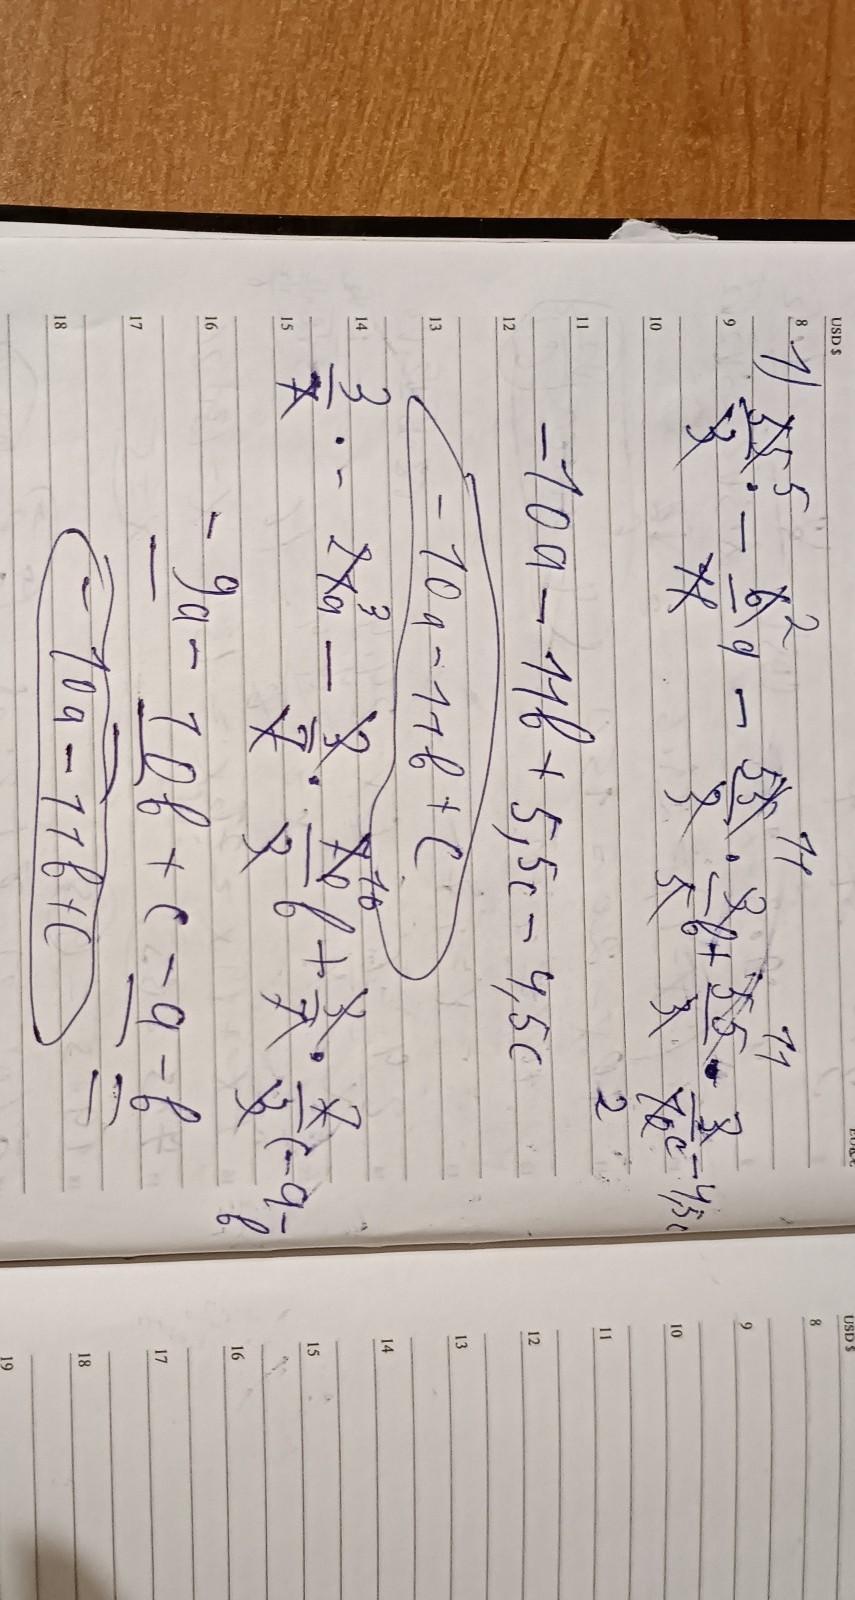 USD $
8
9
10
11
12
13
14
15
16
17
18
1) 55/3 · - 6/11 a - 55/3 · 3/5 b + 55/3 · 3/10 c - 4,5c
5 2 11 11 2
-10a - 11b + 5,5c - 4,5c
-10a - 11b + c
3/7 · - 21a - 3/7 · 70/3 b + 3/7 · 7/3 c - a - b
3 10
-9a - 10b + c - a - b
-10a - 11b + c
USD $
8
9
10
11
12
13
14
15
16
17
18
19